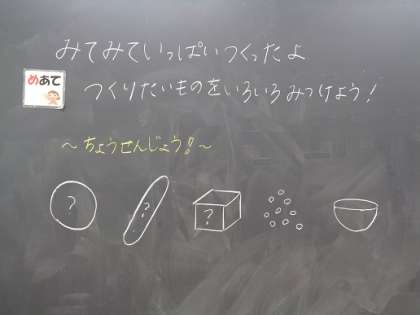 みてみていっぱいつくったよ
めあて
つくりたいものをいろいろみつけよう!
～ちょうせんじょう!～
? ? ?